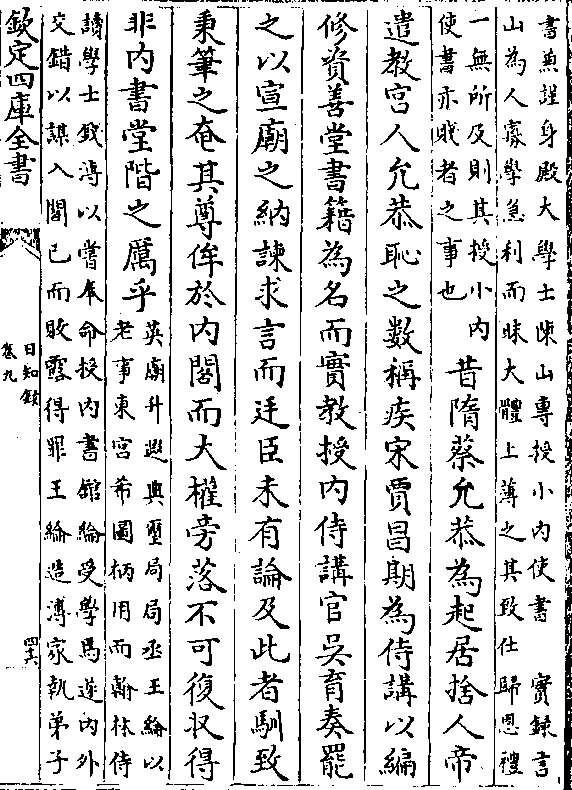 書兼謹身殿大學士陳山專授小内使書　實錄言
山為人寡學急利而昧大體上薄之其致仕歸恩禮
一無所及則其授小内
使書亦賤者之事也
昔隋蔡允恭為起居舍人帝
遣教宫人允恭恥之數稱疾宋賈昌期為侍講以編
修資善堂書籍為名而實教授内侍講官吳育奏罷
之以宣廟之納諫求言而廷臣未有論及此者馴致
秉筆之奄其尊侔於内閣而大權旁落不可復収得
非内書堂階之厲乎
英廟升遐典璽局局丞王綸以
老事東宫希圖柄用而翰林侍
讀學士錢溥以嘗奉命授内書館綸受學焉遂内外
交錯以謀入閣已而敗露得罪王綸造溥家執弟子
欽定四庫全書
日知錄
卷九
四六